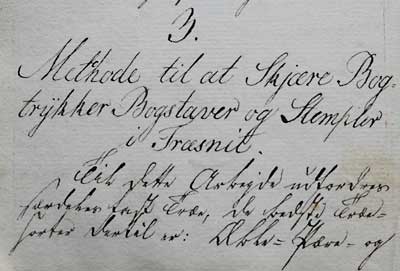 3.
Methode til at Skjære Bog-
trykker Bogstaver og Stempler
i Træsnit.
Til dette Arbeyde udfordres
særdeles fast Træ, de bedste Træe-
sorter dertil er: Æble- Pære- og